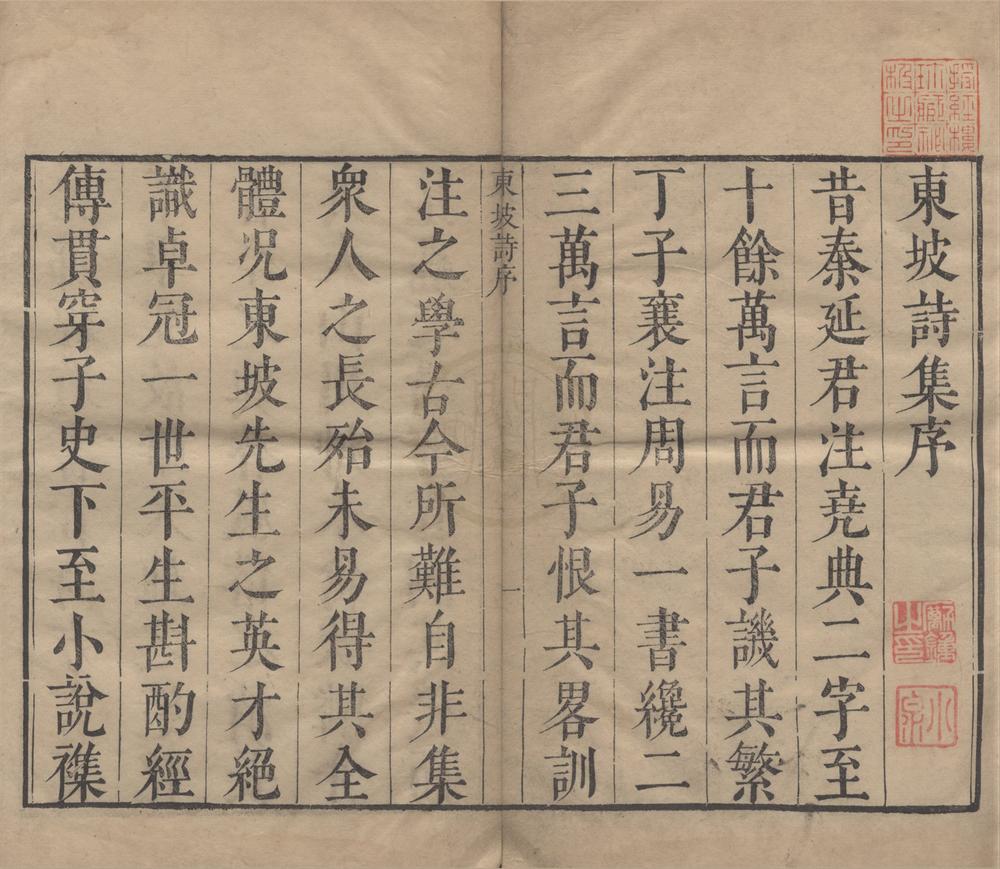 東坡詩集序
昔秦延君注堯典二字至
十餘萬言而君子譏其繁
丁子襄注周易一書纔二
三萬言而君子恨其畧訓
東坡詩序
一
注之學古今所難自非集
衆人之長殆未易得其全
體况東坡先生之英才絕
識卓冠一世平生斟酌經
傳貫穿子史下至小說襍
授經樓
珍藏祕
极之印
小
泉